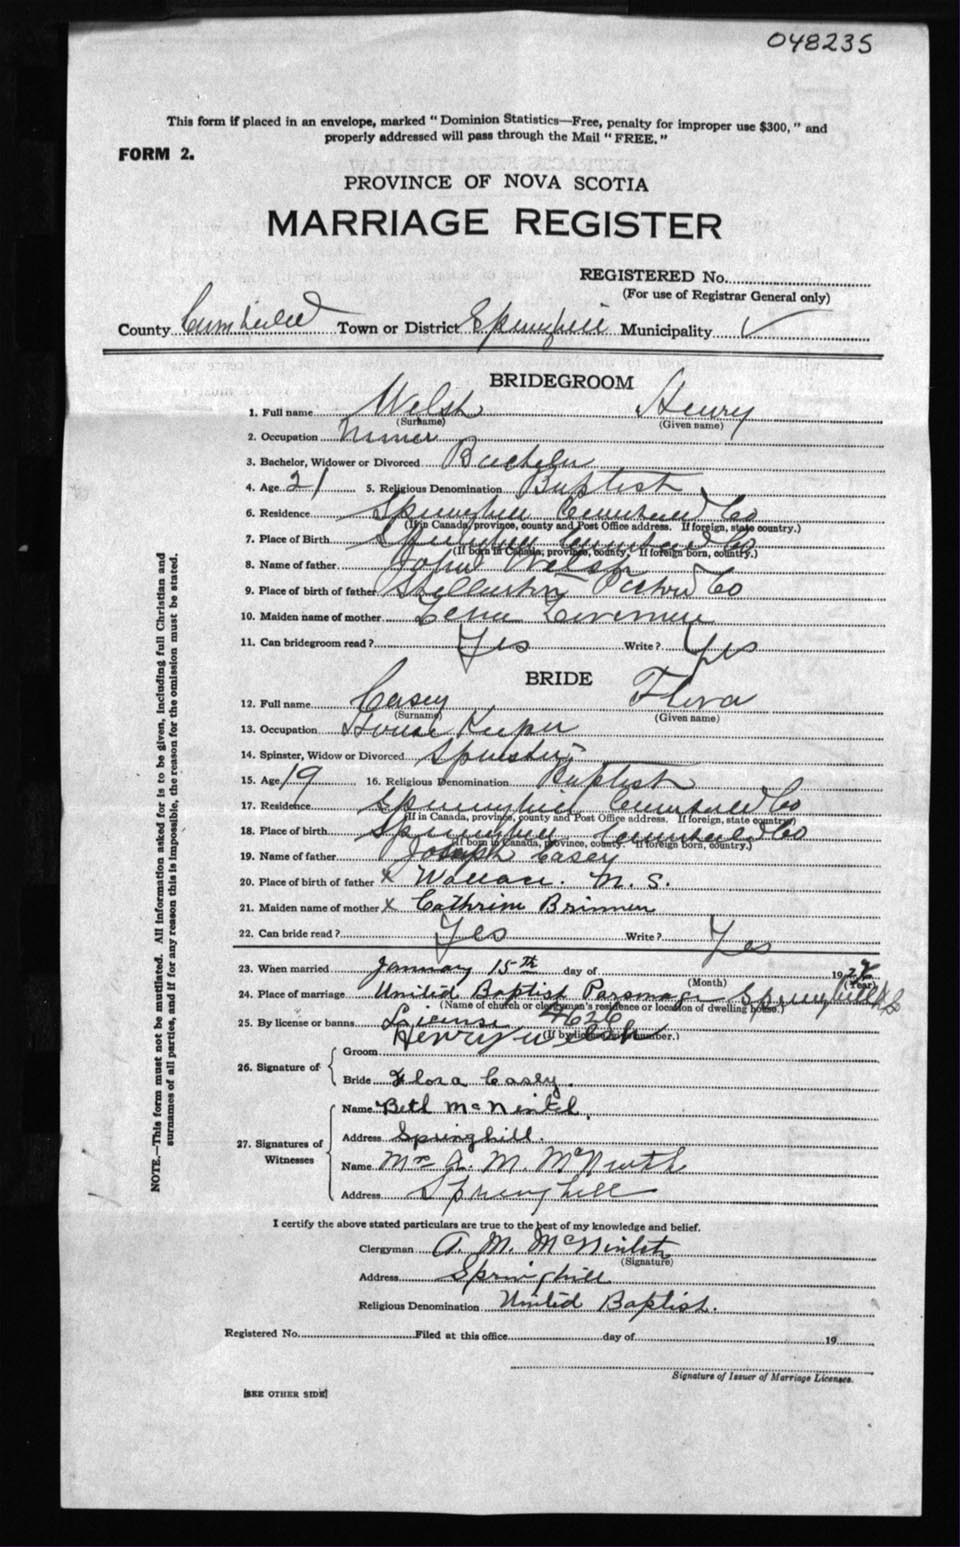 048235
This form if placed in an envelope, marked "Dominion Statistics—Free, penalty for improper use $300," and
properly addressed will pass through the Mail "FREE."
FORM 2.
PROVINCE OF NOVA SCOTIA
MARRIAGE REGISTER
REGISTERED No.
(For use of Registrar General only)
County Cumberland Town or District Springhill Municipality ✓
BRIDEGROOM
1. Full name Welsh Henry
(Surname) (Given name)
2. Occupation Miner
3. Bachelor, Widower or Divorced Bachelor
4. Age 21 5. Religious Denomination Baptist
6. Residence Springhill Cumberland Co
(If in Canada, province, county and Post Office address. If foreign, state country.)
7. Place of Birth Springhill Cumberland Co
(If born in Canada, province, county. If foreign born, country.)
8. Name of father John Welsh
9. Place of birth of father Stellarton Pictou Co
10. Maiden name of mother Lena
11. Can bridegroom read? Yes Write? Yes
BRIDE
12. Full name Casey Flora
(Surname) (Given name)
13. Occupation House Keeper
14. Spinster, Widow or Divorced Spinster
15. Age 19 16. Religious Denomination Baptist
17. Residence Springhill Cumberland Co
(If in Canada, province, county and Post Office address. If foreign, state country)
18. Place of birth Springhill Cumberland Co
(If born in Canada, province, county. If foreign born, country.)
19. Name of father Joseph Casey
20. Place of birth of father x Wallace. N. S.
21. Maiden name of mother x Cathrine
22. Can bride read? Yes Write? Yes
23. When married January 15th day of 192
(Month) (Year)
24. Place of marriage United Baptist Parsonage Springhill N.S
(Name of church or clergyman's residence or location of dwelling house.)
25. By license or banns License 4626
(If by license, number.)
26. Signature of
Groom Henry Welsh
Bride Flora Casey.
27. Signatures of
Witnesses
Name Beth McNintch.
Address Springhill.
Name Mrs A. M. McNintch
Address Springhill
I certify the above stated particulars are true to the best of my knowledge and belief.
Clergyman A. M. McNintch
(Signature)
Address Springhill
Religious Denomination United Baptist.
Registered No. Filed at this office day of 19
Signature of Issuer of Marriage Licenses.
[SEE OTHER SIDE]
NOTE.—This form must not be mutilated. All information asked for is to be given, including full Christian and
surnames of all parties, and if for any reason this is impossible, the reason for the omission must be stated.